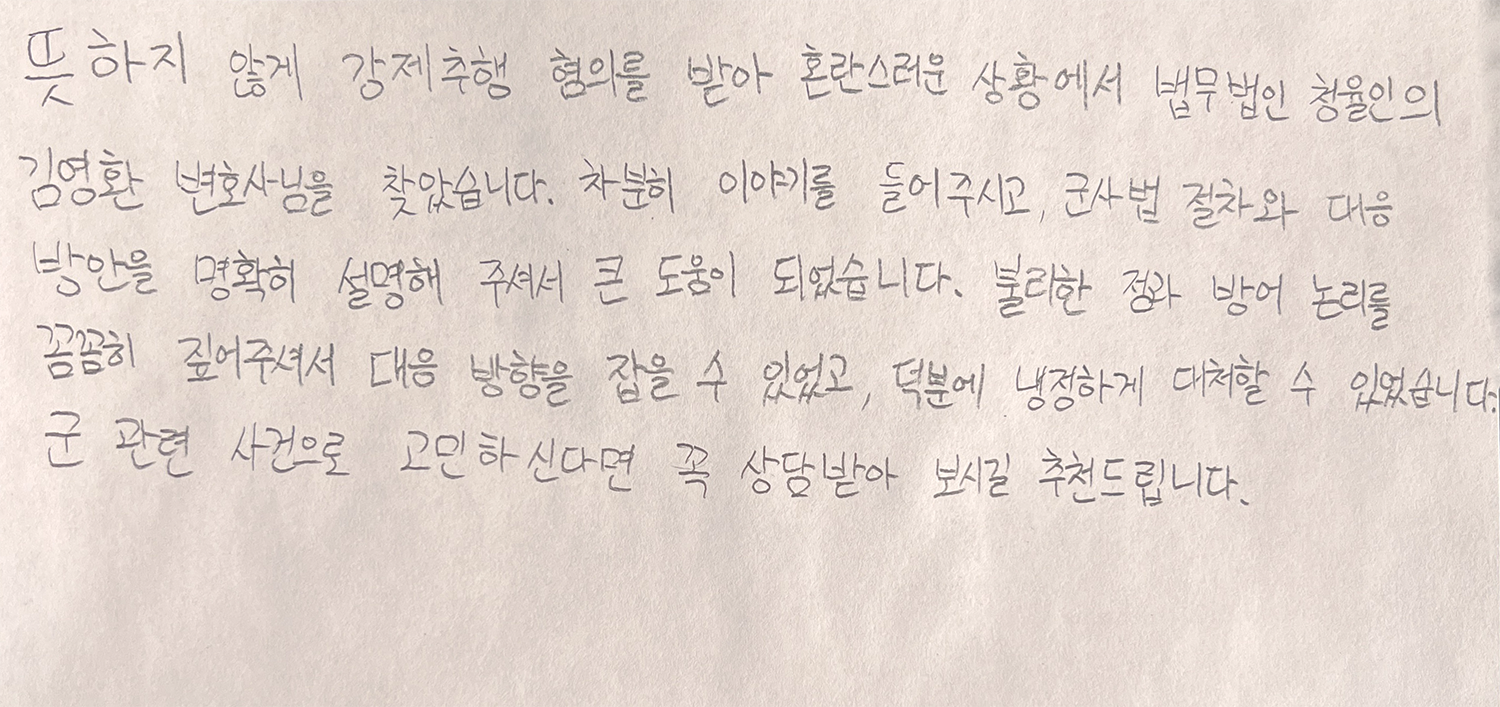 뜻하지 않게 강제추행 혐의를 받아 혼란스러운 상황에서 법무법인 청율인의
김영환 변호사님을 찾았습니다. 차분히 이야기를 들어주시고, 군사법 절차와 대응
방안을 명확히 설명해 주셔서 큰 도움이 되었습니다. 불리한 점과 방어 논리를
꼼꼼히 짚어주셔서 대응 방향을 잡을 수 있었고, 덕분에 냉정하게 대처할 수 있었습니다.
군 관련 사건으로 고민하신다면 꼭 상담받아 보시길 추천드립니다.